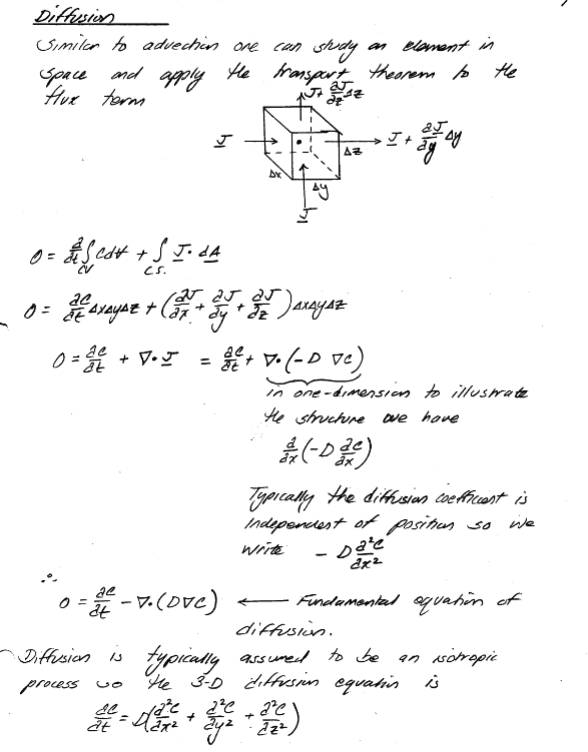 Diffusion
Similar to advection one can study an element in
space and apply the transport theorem to the
flux term
J + ∂J/∂z Δz
J
J + ∂J/∂y Δy
Δz
Δx
Δy
J
0 = ∂/∂t ∫ C dV + ∫ J · dA
CV C.S.
0 = ∂C/∂t ΔxΔyΔz + (∂J/∂x + ∂J/∂y + ∂J/∂z) ΔxΔyΔz
0 = ∂C/∂t + ∇·J = ∂C/∂t + ∇·(-D ∇C)
in one-dimension to illustrate
the structure we have
∂/∂x (-D ∂C/∂x)
Typically the diffusion coefficient is
independent of position so we
write - D ∂²C/∂x²
∴
0 = ∂C/∂t - ∇·(D∇C) ← Fundamental equation of
diffusion.
Diffusion is typically assumed to be an isotropic
process so the 3-D diffusion equation is
∂C/∂t = D(∂²C/∂x² + ∂²C/∂y² + ∂²C/∂z²)